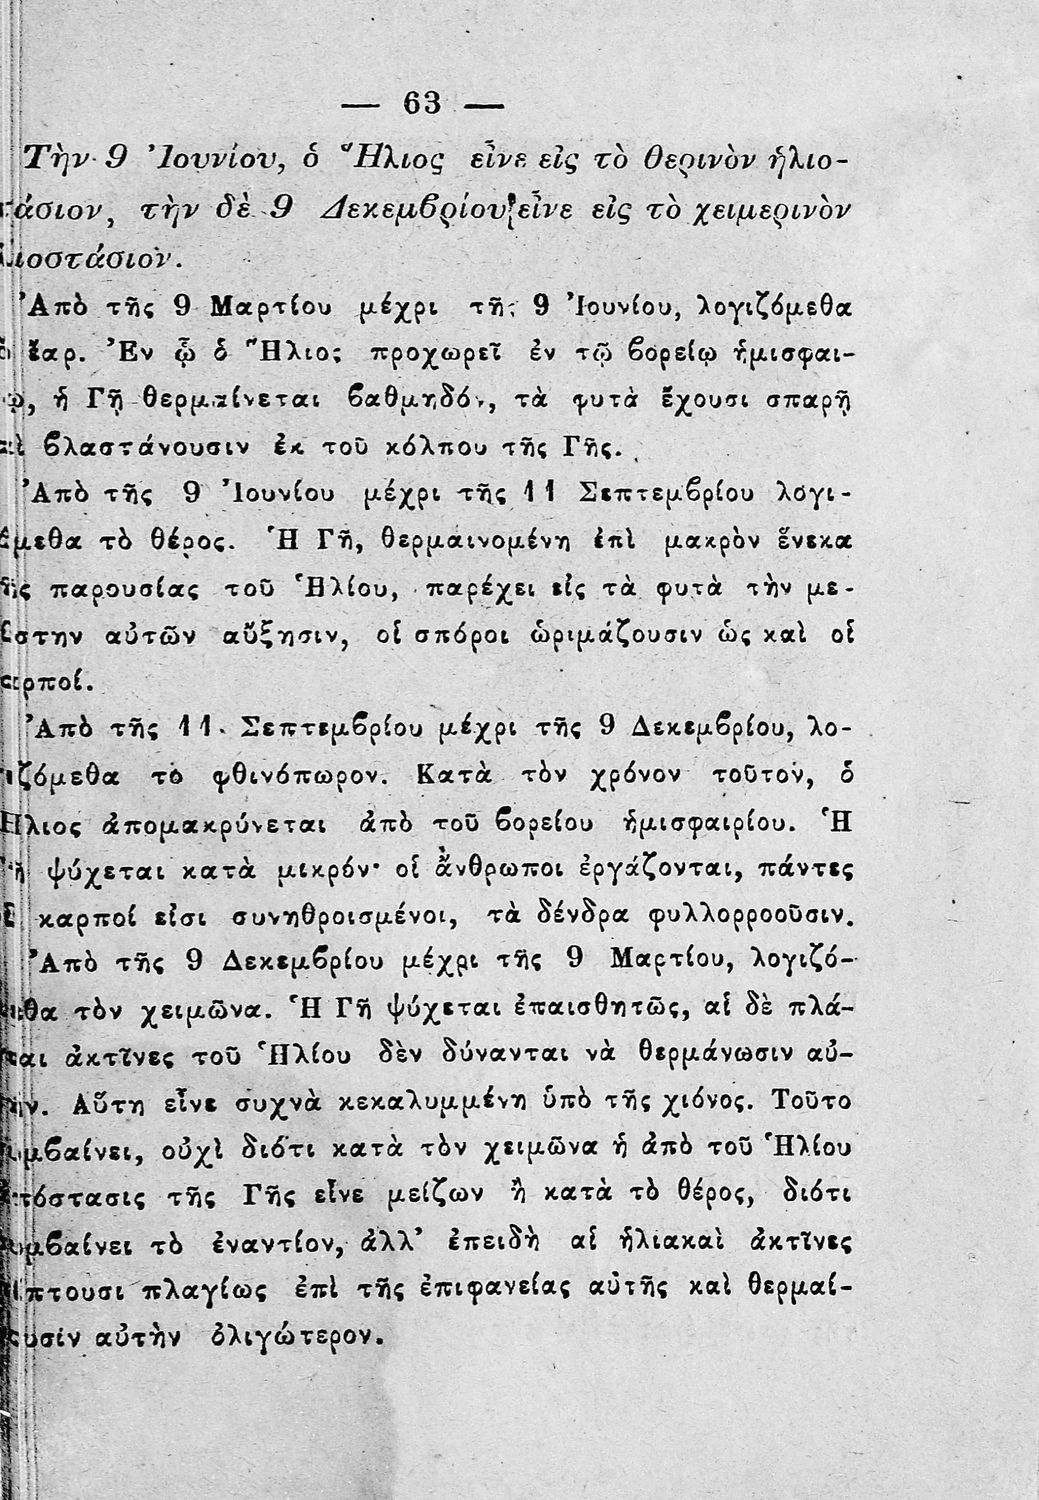 — 63 —
Τὴν 9 Ἰουνίου, ὁ Ἥλιος εἶνε εἰς τὸ θερινὸν ἡλιο-
τάσιον, τὴν δὲ 9 Δεκεμβρίου εἶνε εἰς τὸ χειμερινὸν
λιοστάσιον.
Ἀπὸ τῆς 9 Μαρτίου μέχρι τῆς 9 Ἰουνίου, λογιζόμεθα
ὸ ἔαρ. Ἐν ᾧ ὁ Ἥλιος προχωρεῖ ἐν τῷ βορείῳ ἡμισφαι-
ῳ, ἡ Γῆ θερμαίνεται βαθμηδόν, τὰ φυτὰ ἔχουσι σπαρῇ
αὶ βλαστάνουσιν ἐκ τοῦ κόλπου τῆς Γῆς.
Ἀπὸ τῆς 9 Ἰουνίου μέχρι τῆς 11 Σεπτεμβρίου λογι-
όμεθα τὸ θέρος. Ἡ Γῆ, θερμαινομένη ἐπὶ μακρὸν ἕνεκα
ῆς παρουσίας τοῦ Ἡλίου, παρέχει εἰς τὰ φυτὰ τὴν με-
ίστην αὐτῶν αὔξησιν, οἱ σπόροι ὡριμάζουσιν ὡς καὶ οἱ
αρποί.
Ἀπὸ τῆς 11 Σεπτεμβρίου μέχρι τῆς 9 Δεκεμβρίου, λο-
ιζόμεθα τὸ φθινόπωρον. Κατὰ τὸν χρόνον τοῦτον, ὁ
Ἥλιος ἀπομακρύνεται ἀπὸ τοῦ βορείου ἡμισφαιρίου. Ἡ
ῆ ψύχεται κατὰ μικρόν· οἱ ἄνθρωποι ἐργάζονται, πάντες
ἱ καρποί εἰσι συνηθροισμένοι, τὰ δένδρα φυλλορροοῦσιν.
Ἀπὸ τῆς 9 Δεκεμβρίου μέχρι τῆς 9 Μαρτίου, λογιζό-
μεθα τὸν χειμῶνα. Ἡ Γῆ ψύχεται ἐπαισθητῶς, αἱ δὲ πλά-
ιαι ἀκτῖνες τοῦ Ἡλίου δὲν δύνανται νὰ θερμάνωσιν αὐ-
τήν. Αὕτη εἶνε συχνὰ κεκαλυμμένη ὑπὸ τῆς χιόνος. Τοῦτο
υμβαίνει, οὐχὶ διότι κατὰ τὸν χειμῶνα ἡ ἀπὸ τοῦ Ἡλίου
πόστασις τῆς Γῆς εἶνε μείζων ἢ κατὰ τὸ θέρος, διότι
υμβαίνει τὸ ἐναντίον, ἀλλ' ἐπειδὴ αἱ ἡλιακαὶ ἀκτῖνες
ίπτουσι πλαγίως ἐπὶ τῆς ἐπιφανείας αὐτῆς καὶ θερμαί-
ουσίν αὐτὴν ὀλιγώτερον.